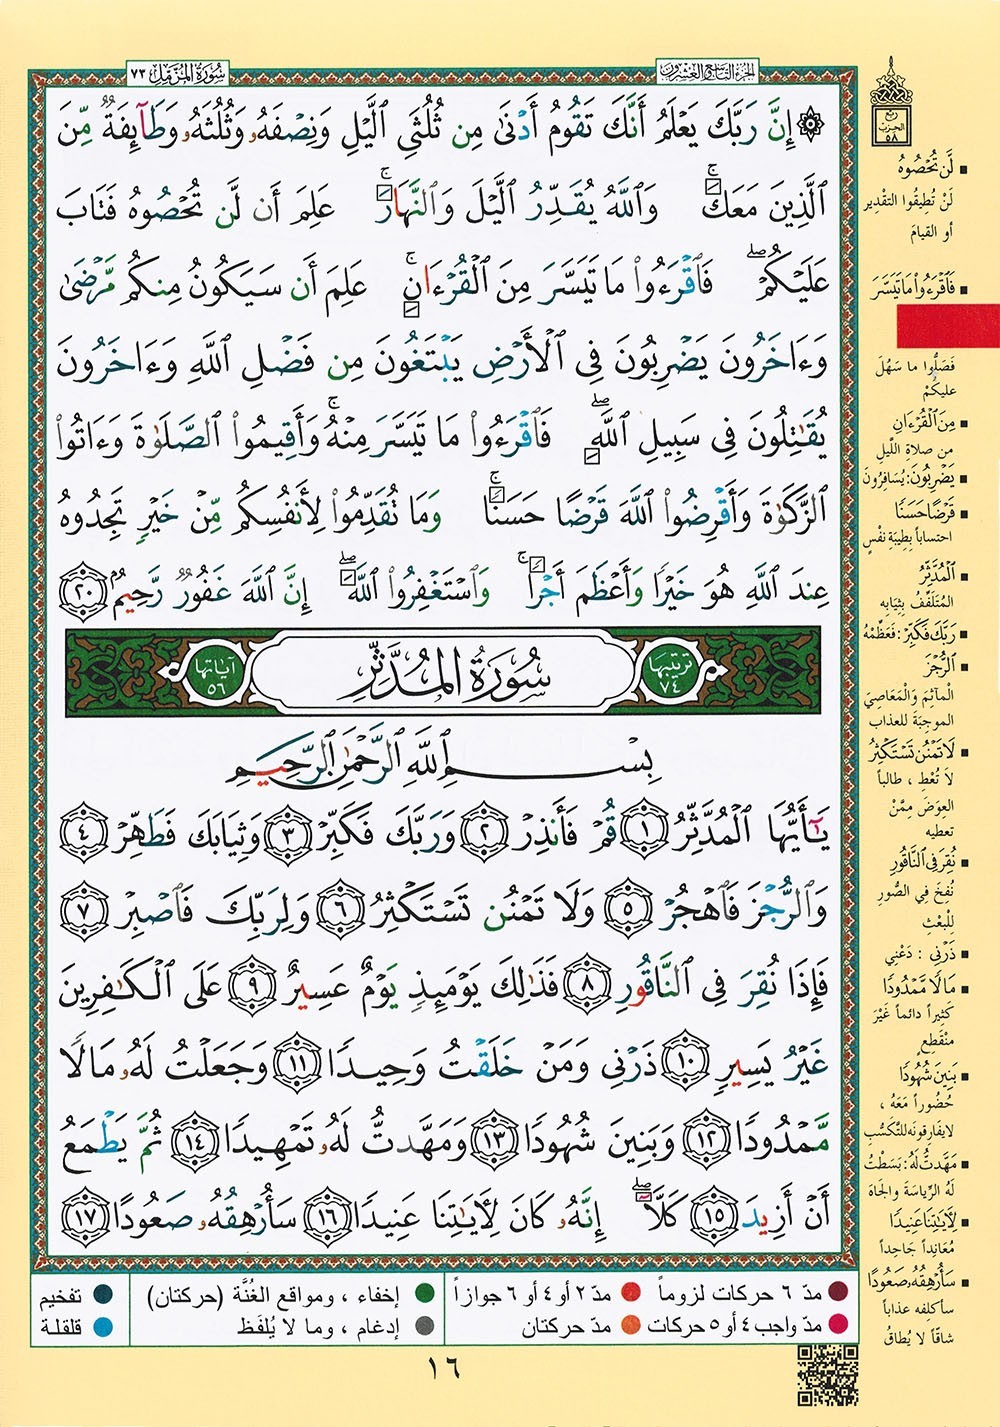 سُورَةُ المُزَّمِّل ٧٣
الجزء التاسع والعشرون
ربع الحزب ٥٨
۞ إِنَّ رَبَّكَ يَعْلَمُ أَنَّكَ تَقُومُ أَدْنَىٰ مِن ثُلُثَيِ ٱلَّيْلِ وَنِصْفَهُۥ وَثُلُثَهُۥ وَطَآئِفَةٌ مِّنَ
ٱلَّذِينَ مَعَكَ ۚ وَٱللَّهُ يُقَدِّرُ ٱلَّيْلَ وَٱلنَّهَارَ ۚ عَلِمَ أَن لَّن تُحْصُوهُ فَتَابَ
عَلَيْكُمْ ۖ فَٱقْرَءُوا۟ مَا تَيَسَّرَ مِنَ ٱلْقُرْءَانِ ۚ عَلِمَ أَن سَيَكُونُ مِنكُم مَّرْضَىٰ
وَءَاخَرُونَ يَضْرِبُونَ فِى ٱلْأَرْضِ يَبْتَغُونَ مِن فَضْلِ ٱللَّهِ وَءَاخَرُونَ
يُقَٰتِلُونَ فِى سَبِيلِ ٱللَّهِ ۖ فَٱقْرَءُوا۟ مَا تَيَسَّرَ مِنْهُ ۚ وَأَقِيمُوا۟ ٱلصَّلَوٰةَ وَءَاتُوا۟
ٱلزَّكَوٰةَ وَأَقْرِضُوا۟ ٱللَّهَ قَرْضًا حَسَنًا ۚ وَمَا تُقَدِّمُوا۟ لِأَنفُسِكُم مِّنْ خَيْرٍ تَجِدُوهُ
عِندَ ٱللَّهِ هُوَ خَيْرًا وَأَعْظَمَ أَجْرًا ۚ وَٱسْتَغْفِرُوا۟ ٱللَّهَ ۖ إِنَّ ٱللَّهَ غَفُورٌ رَّحِيمٌۢ ٢٠
ترتيبها ٧٤ سُورَةُ المُدَّثِّرِ آياتها ٥٦
بِسْمِ ٱللَّهِ ٱلرَّحْمَٰنِ ٱلرَّحِيمِ
يَٰٓأَيُّهَا ٱلْمُدَّثِّرُ ١ قُمْ فَأَنذِرْ ٢ وَرَبَّكَ فَكَبِّرْ ٣ وَثِيَابَكَ فَطَهِّرْ ٤
وَٱلرُّجْزَ فَٱهْجُرْ ٥ وَلَا تَمْنُن تَسْتَكْثِرُ ٦ وَلِرَبِّكَ فَٱصْبِرْ ٧
فَإِذَا نُقِرَ فِى ٱلنَّاقُورِ ٨ فَذَٰلِكَ يَوْمَئِذٍ يَوْمٌ عَسِيرٌ ٩ عَلَى ٱلْكَٰفِرِينَ
غَيْرُ يَسِيرٍ ١٠ ذَرْنِى وَمَنْ خَلَقْتُ وَحِيدًا ١١ وَجَعَلْتُ لَهُۥ مَالًا
مَّمْدُودًا ١٢ وَبَنِينَ شُهُودًا ١٣ وَمَهَّدتُّ لَهُۥ تَمْهِيدًا ١٤ ثُمَّ يَطْمَعُ
أَنْ أَزِيدَ ١٥ كَلَّآ ۖ إِنَّهُۥ كَانَ لِءَايَٰتِنَا عَنِيدًا ١٦ سَأُرْهِقُهُۥ صَعُودًا ١٧
لَّن تُحْصُوهُ
لَنْ تُطِيقُوا التقْدِير
أو القيامَ
فَٱقْرَءُوا۟ مَا تَيَسَّرَ
فَصَلُّوا ما سَهُلَ
عليكُمْ
مِنَ ٱلْقُرْءَانِ
من صلاةِ اللّيلِ
يَضْرِبُونَ: يُسَافِرُونَ
قَرْضًا حَسَنًا
احتساباً بِطِيبَةِ نفْسٍ
ٱلْمُدَّثِّرُ
المُتَلَفِّفُ بِثِيَابِه
رَبَّكَ فَكَبِّرْ: فَعَظِّمْهُ
ٱلرُّجْزَ
الْمآثِمَ وَالْمَعَاصِيَ
الموجِبَةَ للعذاب
لَا تَمْنُن تَسْتَكْثِرُ
لاَ تُعْطِ ، طالباً
العِوَضَ مِمَّنْ
تعطيه
نُقِرَ فِى ٱلنَّاقُورِ
نُفِخَ فِي الصُّورِ
لِلْبَعْثِ
ذَرْنِى : دَعْنِي
مَالًا مَّمْدُودًا
كَثِيراً دائماً غَيْرَ
منْقَطِعٍ
بَنِينَ شُهُودًا
حُضُوراً مَعَهُ ،
لايفارِقونَه للتّكَسُّبِ
مَهَّدتُّ لَهُ: بَسَطْتُ
لَهُ الرِّيَاسَةَ والجَاهَ
لِءَايَٰتِنَا عَنِيدًا
مُعَانِداً جَاحِداً
سَأُرْهِقُهُۥ صَعُودًا
سأكلِفه عذاباً
شاقّاً لا يُطاقُ
مدّ ٦ حركات لزوماً
مدّ ٢ أو ٤ أو ٦ جوازاً
إخفاء ، ومواقع الغُنَّة (حركتان)
تفخيم
مدّ واجب ٤ أو ٥ حركات
مدّ حركتان
إدغام ، وما لا يُلفَظ
قلقلة
١٦